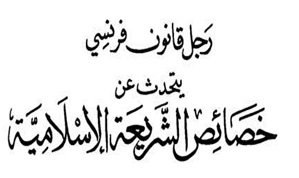 رَجل قانون فرنسِي
يتحدث عن
خصَائِص الشريعَة الإسْلَاميَّة